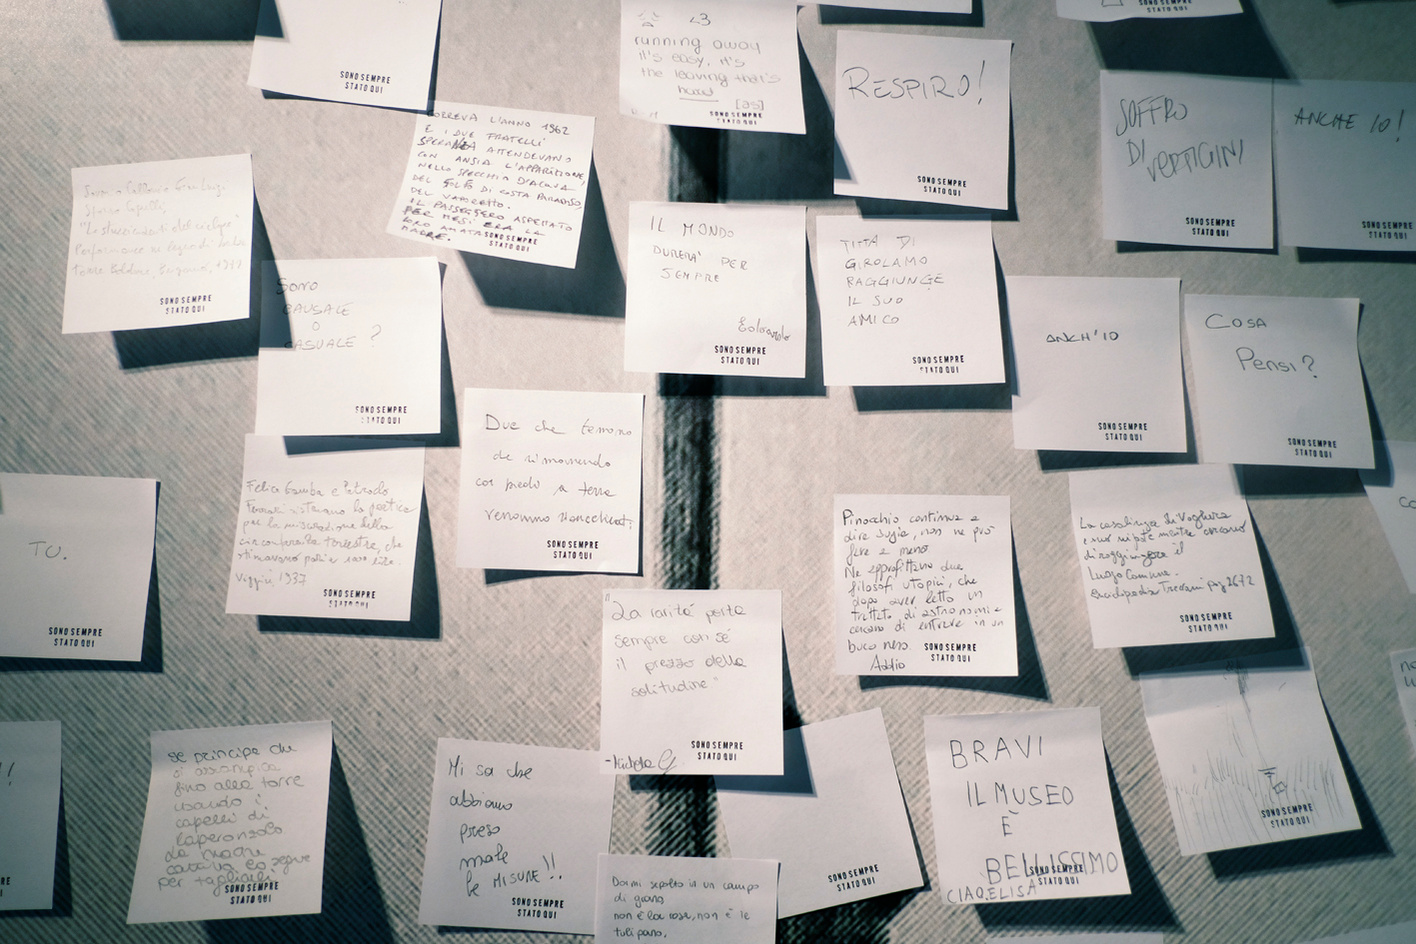 SONO SEMPRE
STATO QUI
<3
running away
it's easy, it's
the leaving that's
hard [as]
SONO SEMPRE
STATO QUI
RESPIRO!
SONO SEMPRE
STATO QUI
STATO QUI
SOFFRO
DI VERTIGINI
SONO SEMPRE
STATO QUI
ANCHE IO!
SONO SEMPRE
STATO QUI
CORREVA L'ANNO 1962
E I DUE FRATELLI
ATTENDEVANO
CON ANSIA L'APPARIZIONE,
NELLO SPECCHIO D'ACQUA
DEL GOLFO DI COSTA PARADISO,
DEL VAPORETTO.
IL PASSEGGERO ASPETTATO
PER MESI ERA LA
LORO AMATA
MADRE.
SONO SEMPRE
STATO QUI
SONO SEMPRE
STATO QUI
SONO
CAUSALE
O
CASUALE?
SONO SEMPRE
STATO QUI
IL MONDO
DURERA' PER
SEMPRE
SONO SEMPRE
STATO QUI
TITTA DI
GIROLAMO
RAGGIUNGE
IL SUO
AMICO
SONO SEMPRE
STATO QUI
ANCH'IO
SONO SEMPRE
STATO QUI
Cosa
Pensi?
SONO SEMPRE
STATO QUI
Due che temono
de rimanendo
coi piedi a terra
verranno
SONO SEMPRE
STATO QUI
TU.
SONO SEMPRE
STATO QUI
Felice Gamba e
la poetica
per la misurazione della
circonferenza terrestre, che
stimavano pari a 1000 lire.
1937
SONO SEMPRE
STATO QUI
Pinocchio continua a
dire bugie, non ne può
fare a meno
Ne approfittano due
filosofi utopici, che
dopo aver letto un
trattato di astronomia
cercano di entrare in un
buco nero.
Addio
SONO SEMPRE
STATO QUI
La casalinga di Voghera
e suo nipote mentre cercano
di raggiungere il
Luogo Comune.
Enciclopedia Treccani pag 2672
SONO SEMPRE
STATO QUI
"La rarità porta
sempre con sé
il prezzo della
solitudine"
SONO SEMPRE
STATO QUI
SONO SEMPRE
STATO QUI
Se principe che
si arrampica
fino alla torre
usando i
capelli di
Raperonzolo
la madre
cattiva lo segue
per tagliarli
SONO SEMPRE
STATO QUI
Mi sa che
abbiamo
preso
male
le MISURE!!
SONO SEMPRE
STATO QUI
SONO SEMPRE
STATO QUI
BRAVI
IL MUSEO
È
BELLISSIMO
CIAO, ELISA
SONO SEMPRE
STATO QUI
Dormi sepolto in un campo
di grano
non è la rosa, non è le
tulipano,